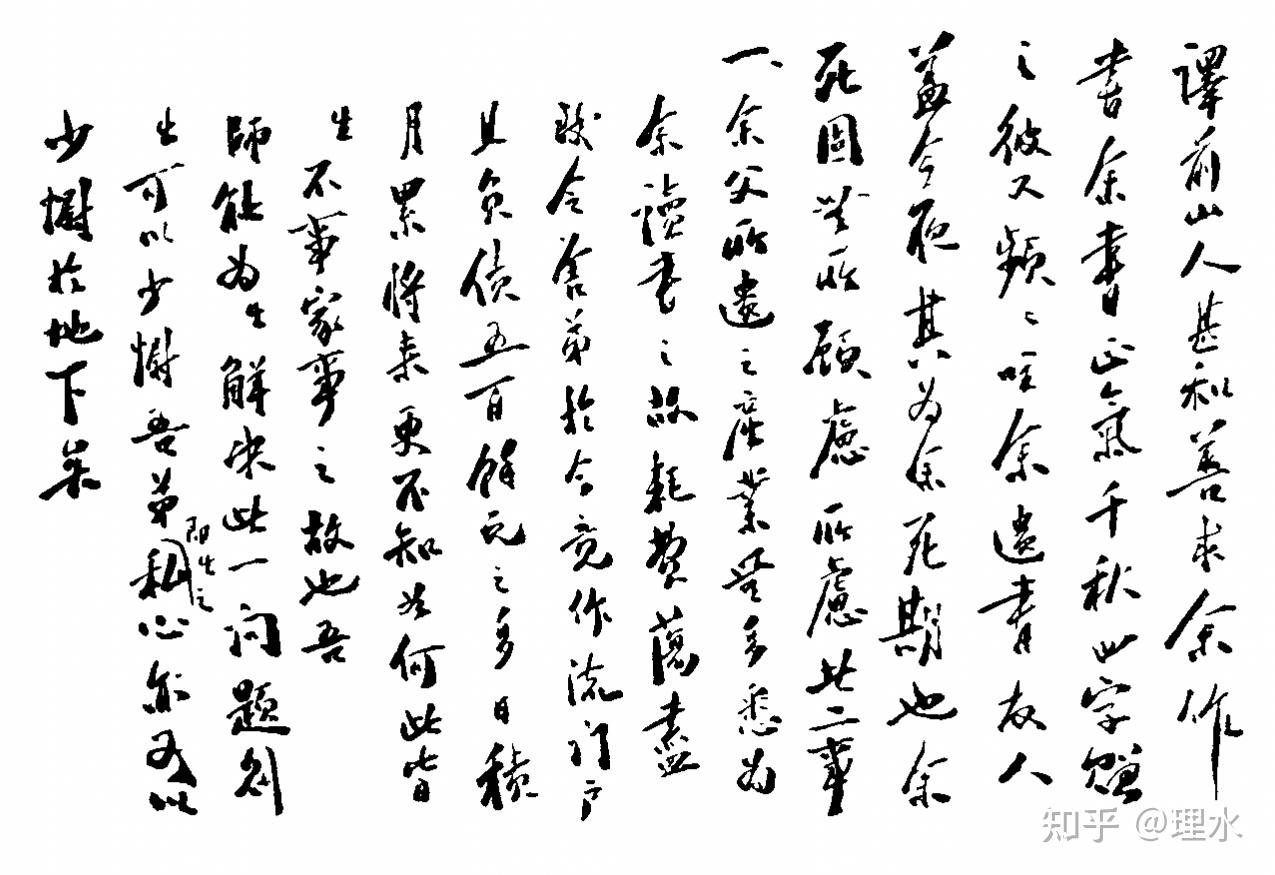 譯前山人甚和善求余作
書余書正氣千秋四字贈
之彼又頻〻囑余遺書友人
蓋今夜其為余死期也余
死固無所顧慮所慮此二事
一、余父所遺之產業無多悉為
余讀書之故耗費蕩盡
致令舍弟於今竟作流門户
且負債五百餘元之多日積
月累將來更不知如何此皆
生不事家事之故也吾
師能為生解決此一問題則
生可以少慚吾弟即生之私心亦可以
少慚於地下矣
知乎 @理水